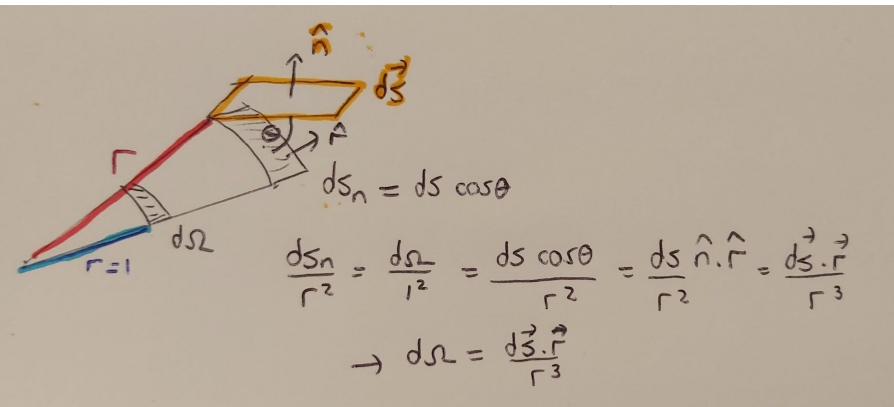 n̂
ds⃗
θ
r̂
r
dsₙ = ds cosθ
dΩ
r=1
dsₙ/r² = dΩ/1² = ds cosθ/r² = ds/r² n̂.r̂ = ds⃗.r⃗/r³
→ dΩ = ds⃗.r⃗/r³